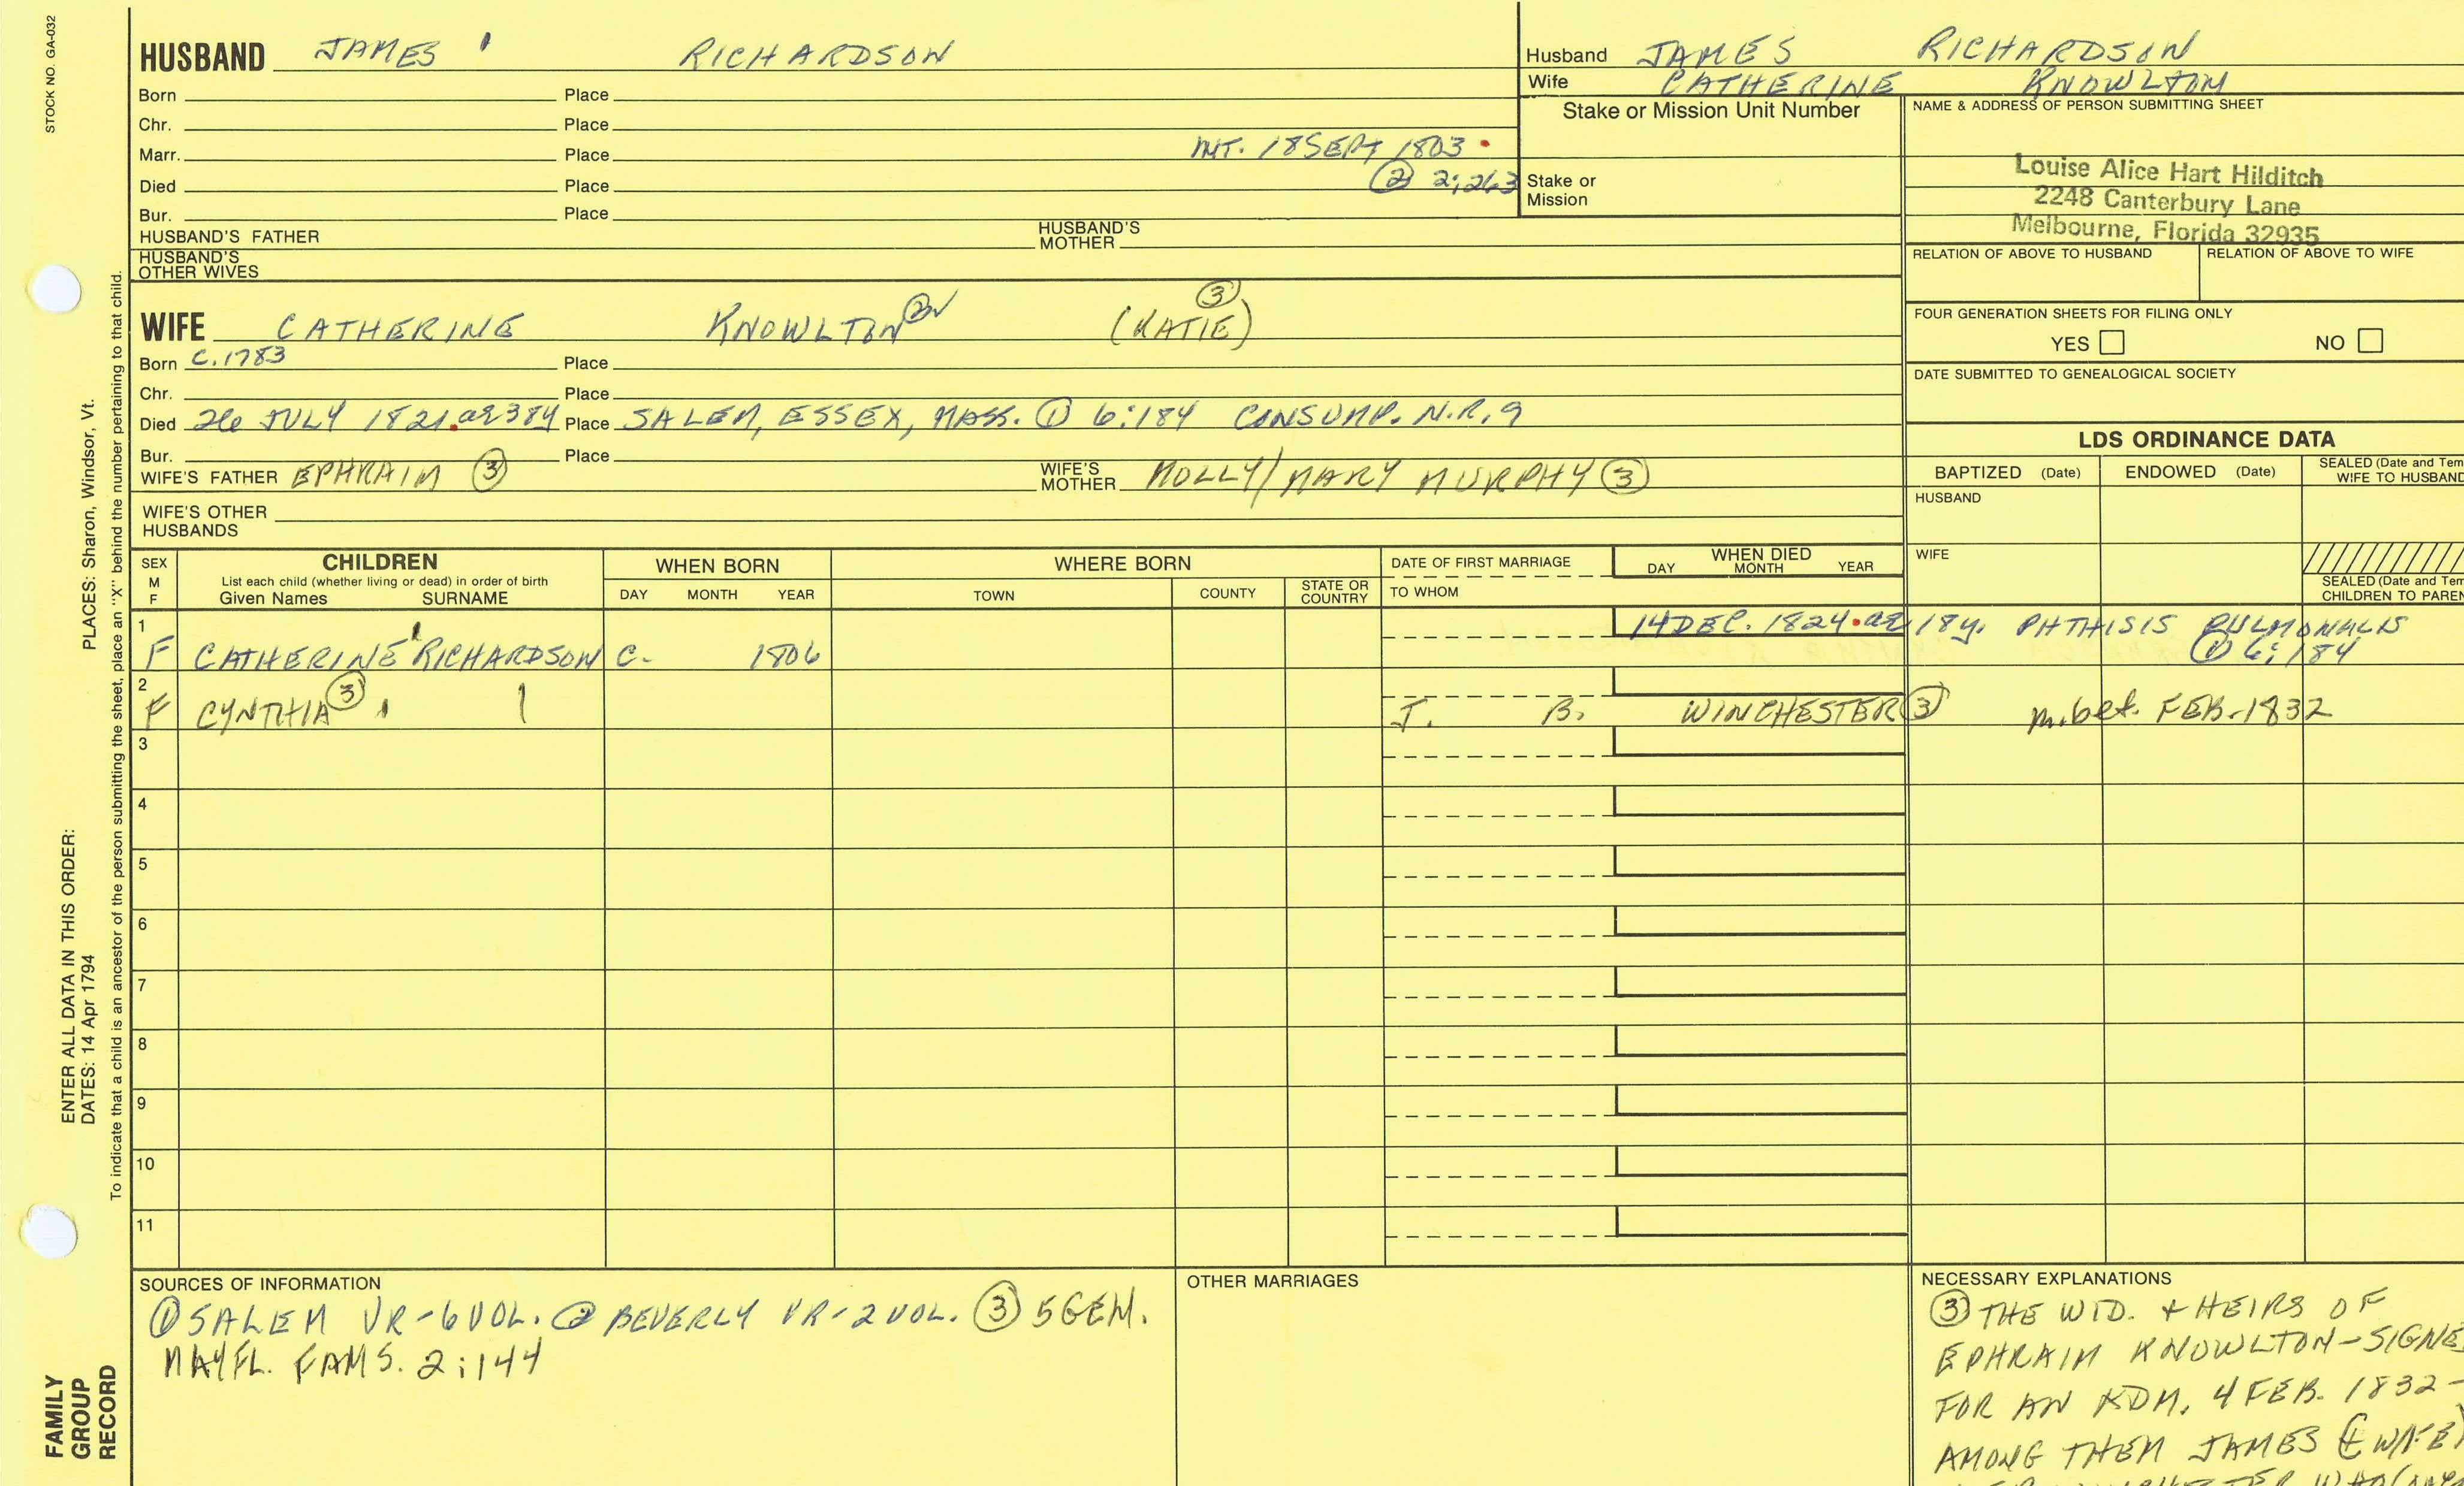 STOCK NO. GA-032
HUSBAND JAMES RICHARDSON
Born Place
Chr. Place
Marr. Place INT. 18 SEPT 1803
Died Place ② 2:263
Bur. Place
HUSBAND'S FATHER HUSBAND'S MOTHER
HUSBAND'S OTHER WIVES
Husband JAMES RICHARDSON
Wife CATHERINE KNOWLTON
Stake or Mission Unit Number
Stake or Mission
NAME & ADDRESS OF PERSON SUBMITTING SHEET
Louise Alice Hart Hilditch
2248 Canterbury Lane
Melbourne, Florida 32935
RELATION OF ABOVE TO HUSBAND RELATION OF ABOVE TO WIFE
FOUR GENERATION SHEETS FOR FILING ONLY
YES NO
DATE SUBMITTED TO GENEALOGICAL SOCIETY
WIFE CATHERINE KNOWLTON ② (KATIE) ③
Born C. 1783 Place
Chr. Place
Died 26 JULY 1821 ae 38y Place SALEM, ESSEX, MASS. ① 6:184 CONSUMP. N.R. 9
Bur. Place
WIFE'S FATHER EPHRAIM ③ WIFE'S MOTHER MOLLY/MARY MURPHY ③
WIFE'S OTHER HUSBANDS
LDS ORDINANCE DATA
BAPTIZED (Date) ENDOWED (Date) SEALED (Date and Tem
WIFE TO HUSBAND
HUSBAND
WIFE
SEALED (Date and Tem
CHILDREN TO PAREN
SEX M F
CHILDREN
List each child (whether living or dead) in order of birth
Given Names SURNAME
WHEN BORN
DAY MONTH YEAR
WHERE BORN
TOWN COUNTY STATE OR COUNTRY
DATE OF FIRST MARRIAGE
TO WHOM
WHEN DIED
DAY MONTH YEAR
1 F CATHERINE RICHARDSON C. 1806 14 DEC. 1824 ae 18y. PHTHISIS PULMONALIS
① 6:184
2 F CYNTHIA ③ J. B. WINCHESTER ③ m. bef. FEB. 1832
3
4
5
6
7
8
9
10
11
SOURCES OF INFORMATION
① SALEM VR-6 VOL. ② BEVERLY VR-2 VOL. ③ 5 GEN.
MAYFL. FAMS. 2:144
OTHER MARRIAGES
NECESSARY EXPLANATIONS
③ THE WID. + HEIRS OF
EPHRAIM KNOWLTON-SIGNE
FOR AN ADM. 4 FEB. 1832-
AMONG THEM JAMES (& WIFE)
PLACES: Sharon, Windsor, Vt.
ENTER ALL DATA IN THIS ORDER:
DATES: 14 Apr 1794
To indicate that a child is an ancestor of the person submitting the sheet, place an "X" behind the number pertaining to that child.
FAMILY
GROUP
RECORD